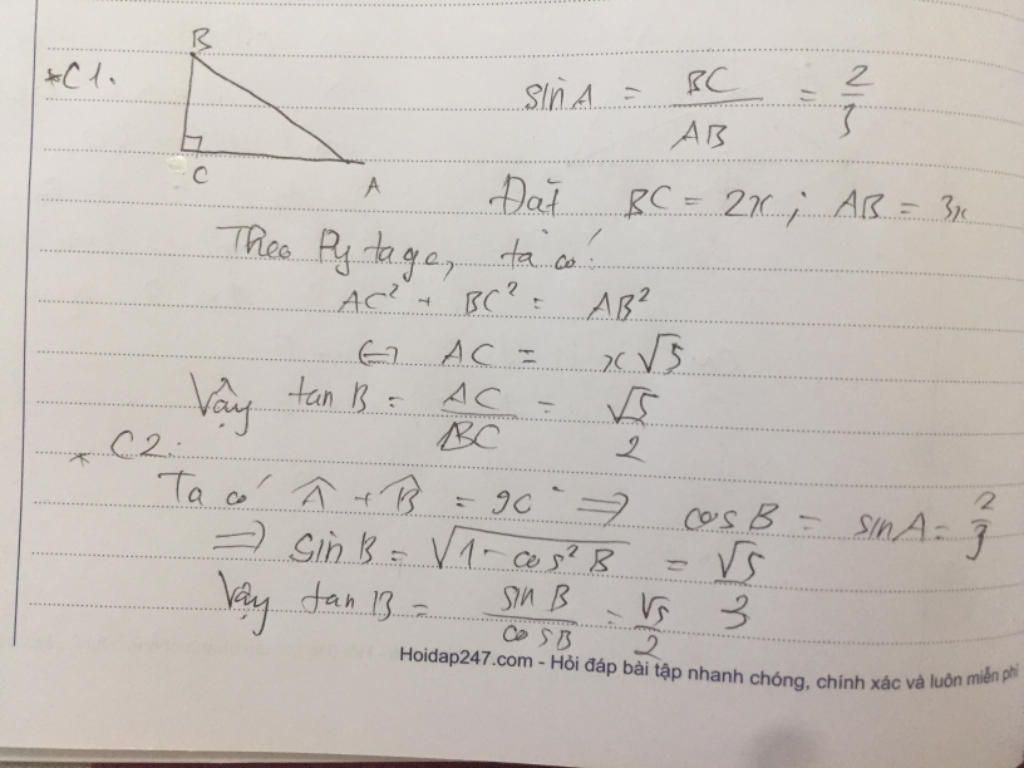 B
*C1.
sin A = BC/AB = 2/3
C
A
Đặt BC = 2x ; AB = 3x
Theo Pytago, ta có:
AC² + BC² = AB²
⟺ AC = x√5
Vậy tan B = AC/BC = √5/2
* C2:
Ta có Â + B̂ = 90° ⟹ cos B = sin A = 2/3
⟹ sin B = √(1 - cos² B) = √5/3
Vậy tan B = sin B/cos B = √5/2
Hoidap247.com - Hỏi đáp bài tập nhanh chóng, chính xác và luôn miễn phí